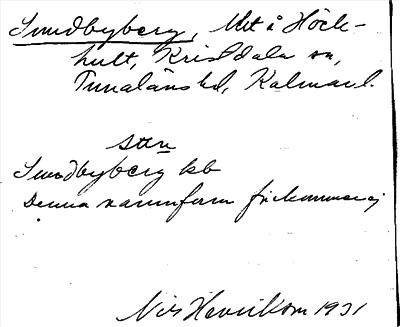 Smedbyberg, Utt å Höck-
hult, Kristdala sn,
Tunaläns hd, Kalmar l.
Smedbyberg kb
Denna namnform förekommer ej
Nils Henrikson 1931